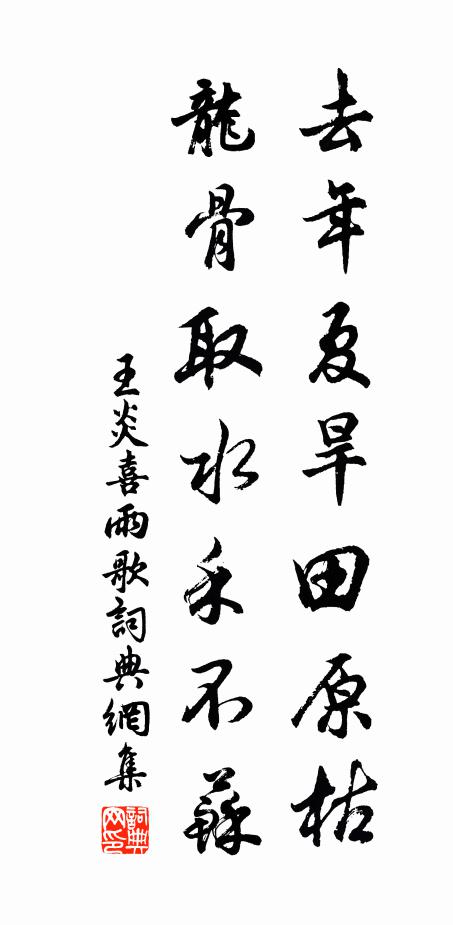 去年夏旱田原枯
龍骨取水禾不蘇
王炎喜雨歌詞典網集
詞典網印